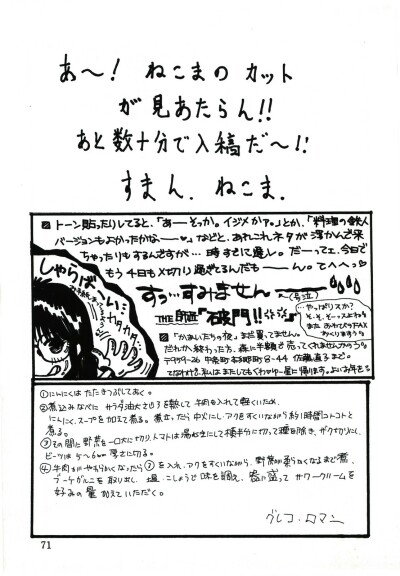 あ〜! ねこまの カット
が見あたらん!!
あと数十分で入稿だ〜!!
すまん、ねこま.
トーン貼ったりしてると、「あーそっか。イジメかァ。」とか、「料理の鉄人
バージョンもよかったかな、——♥」などと、あれこれネタが浮かんで来
ちゃったりもするんですが… 時すでに遅し。だーってェ、今日で
もう4日も〆切り過ぎてるんだも——ん。てへへっ♡
しゃらば
いに…
カタカタ
すっ…すみません———(号泣)
THE 師匠 “破門!!”
…やっぱリスか?
「かまいたちの夜」まだ買ってません。
だれか終わった方、森に半額で売ってくれませんかっ?
佐藤直子まで。
①にんにくは たたきつぶしておく。
②煮込みなべに サラダ油大さじ3を熱して 牛肉を入れて軽くいため、
にんにく、スープを加えて煮る。煮立ったら中火にし、アクをすくいながら約1時間コトコトと
煮る。
③その間に 野菜を一口大に切り、トマトは湯むきにして横半分に切って種を除き、ザク切りにし、
ビーツは 5〜6mm厚さに切る。
④牛肉がやわらかくなったら③を入れ、アクをすくいながら、野菜が柔らかくなるまで煮、
ブーケガルニを取り出し、塩・こしょうで 味を調え、器に盛って サワークリームを
好みの量 加えていただく。
グレコ・ロマン
71